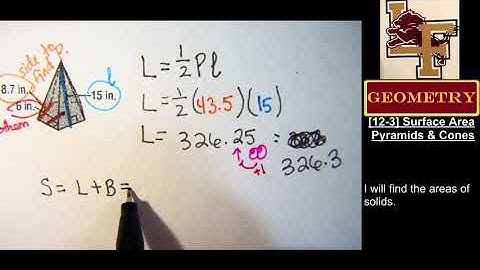 side top
find p.
8.7 in.
6 in.
15 in.
l
L = 1/2 Pl
L = 1/2 (43.5)(15)
L = 326.25 =
+1
326.3
S = L + B =
LF
GEOMETRY
[12-3] Surface Area
Pyramids & Cones
I will find the areas of
solids.